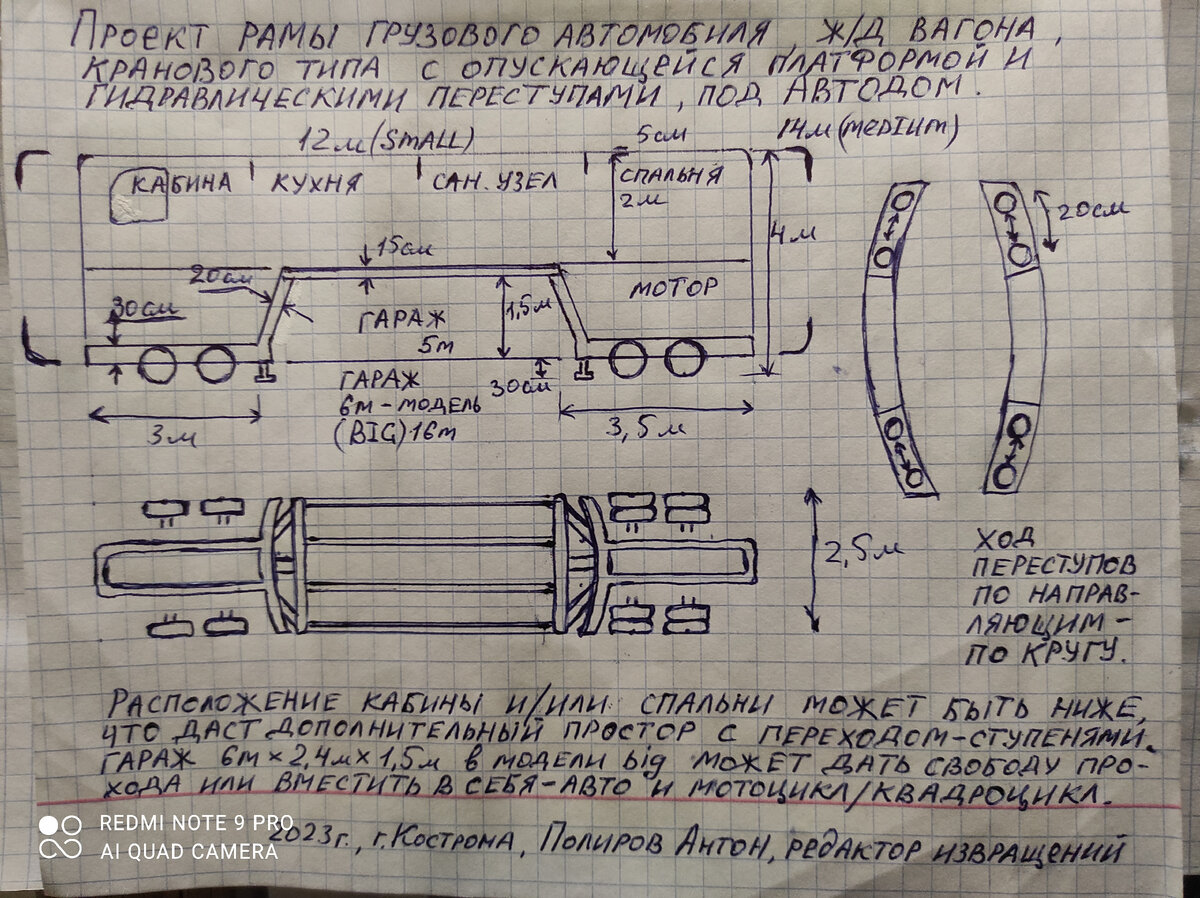 ПРОЕКТ РАМЫ ГРУЗОВОГО АВТОМОБИЛЯ, Ж/Д ВАГОНА,
КРАНОВОГО ТИПА С ОПУСКАЮЩЕЙСЯ ПЛАТФОРМОЙ И
ГИДРАВЛИЧЕСКИМИ ПЕРЕСТУПАМИ, ПОД АВТОДОМ.
12м (SMALL)
5см
14м (MEDIUM)
КАБИНА
КУХНЯ
САН. УЗЕЛ
СПАЛЬНЯ
2м
20см
4м
15см
20см
30см
МОТОР
1,5м
ГАРАЖ
5м
30см
ГАРАЖ
6м-МОДЕЛЬ
(BIG) 16м
3м
3,5м
2,5м
ХОД
ПЕРЕСТУПОВ
ПО НАПРАВ-
ЛЯЮЩИМ-
ПО КРУГУ.
РАСПОЛОЖЕНИЕ КАБИНЫ И/ИЛИ СПАЛЬНИ МОЖЕТ БЫТЬ НИЖЕ,
ЧТО ДАСТ ДОПОЛНИТЕЛЬНЫЙ ПРОСТОР С ПЕРЕХОДОМ-СТУПЕНЯМИ.
ГАРАЖ 6м×2,4м×1,5м В МОДЕЛИ big МОЖЕТ ДАТЬ СВОБОДУ ПРО-
ХОДА ИЛИ ВМЕСТИТЬ В СЕБЯ-АВТО И МОТОЦИКЛ/КВАДРОЦИКЛ.
2023г., г. Кострома, Полиров Антон, редактор извращений
REDMI NOTE 9 PRO
AI QUAD CAMERA